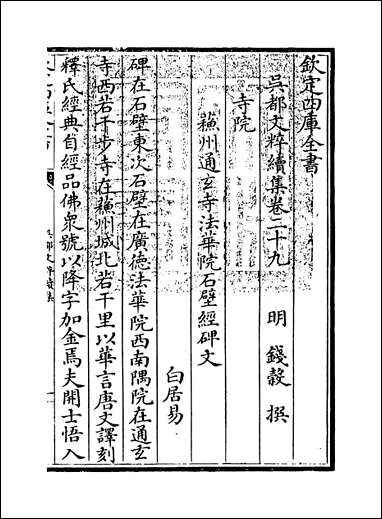 欽定四庫全書
吳都文粹續集卷二十九
明 錢穀 撰
寺院
蘇州通玄寺法華院石壁經碑文
白居易
碑在石壁東次石壁在廣德法華院西南隅院在通玄
寺西若干步寺在蘇州城北若干里以華言唐文譯刻
釋氏經典自經品佛衆號以降字加金焉夫開士悟入